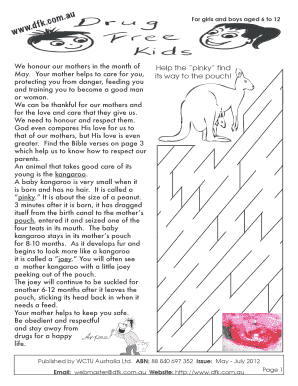 www.dfk.com.au
Drug
Free
Kids
For girls and boys aged 6 to 12
We honour our mothers in the month of
May.  Your mother helps to care for you,
protecting you from danger, feeding you
and training you to become a good man
or woman.
We can be thankful for our mothers and
for the love and care that they give us.
We need to honour and respect them.
God even compares His love for us to
that of our mothers, but His love is even
greater.  Find the Bible verses on page 3
which help us to know how to respect our
parents.
An animal that takes good care of its
young is the kangaroo.
A baby kangaroo is very small when it
is born and has no hair.  It is called a
"pinky." It is about the size of a peanut.
3 minutes after it is born, it has dragged
itself from the birth canal to the mother's
pouch, entered it and seized one of the
four teats in its mouth.  The baby
kangaroo stays in its mother's pouch
for 8-10 months.  As it develops fur and
begins to look more like a kangaroo
it is called a "joey." You will often see
a  mother kangaroo with a little joey
peeking out of the pouch.
The joey will continue to be suckled for
another 6-12 months after it leaves the
pouch, sticking its head back in when it
needs a feed.
Your mother helps to keep you safe.
Be obedient and respectful
and stay away from
drugs for a happy
life.
Help the "pinky" find
its way to the pouch!
Published by WCTU Australia Ltd.  ABN: 88 840 697 352  Issue:  May - July 2012
Email:  webmaster@dfk.com.au  Website: http://www.dfk.com.au
Page 1